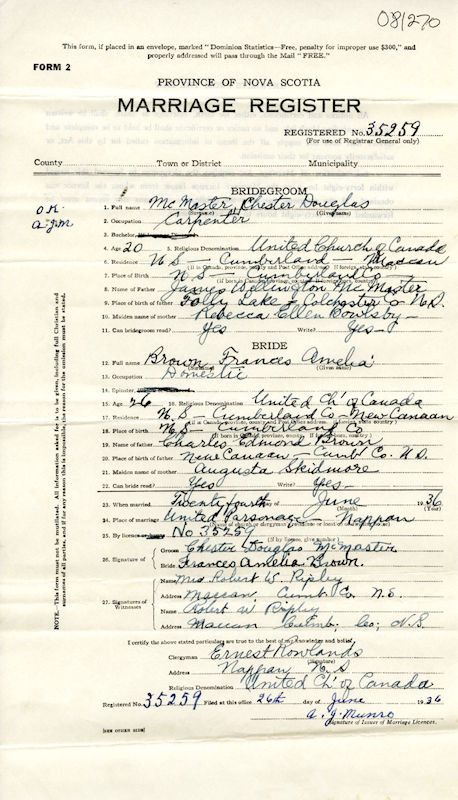 081270
This form, if placed in an envelope, marked "Dominion Statistics—Free, penalty for improper use $300," and
properly addressed will pass through the Mail "FREE."
FORM 2
PROVINCE OF NOVA SCOTIA
MARRIAGE REGISTER
REGISTERED No. 35259
(For use of Registrar General only)
County Town or District Municipality
BRIDEGROOM
O.K.
A.J.M.
1. Full name McMaster, Chester Douglas
(Surname) (Given name)
2. Occupation Carpenter
3. Bachelor
4. Age 20 5. Religious Denomination United Church of Canada
6. Residence N S — Cumberland — Maccan
7. Place of Birth N. S — Cumberland Co
8. Name of Father James Wellington McMaster
9. Place of birth of father Folly Lake — Colchester Co N.S.
10. Maiden name of mother Rebecca Ellen
11. Can bridegroom read? Yes Write? Yes
BRIDE
12. Full name Brown, Frances Amelia
(Surname) (Given name)
13. Occupation Domestic
14. Spinster
15. Age 26 16. Religious Denomination United Ch' of Canada
17. Residence N.S — Cumberland Co — New Canaan
18. Place of birth N.S — Cumberland Co
19. Name of father Charles Edmond Brown
20. Place of birth of father New Canaan — Cumb' Co N.S.
21. Maiden name of mother Augusta Skidmore
22. Can bride read? Yes Write? Yes
23. When married Twenty fourth June 1936
(Month) (Year)
24. Place of marriage United Parsonage — Nappan
25. By licence No 35259
(If by Banns, give number)
26. Signature of Groom Chester Douglas McMaster
Bride Frances Amelia Brown.
27. Signatures of Witnesses
Name Mrs Robert W. Ripley
Address Maccan, Cumb Co. N.S.
Name Robert W Ripley
Address Maccan Cumb. Co; N.S.
I certify the above stated particulars are true to the best of my knowledge and belief.
Clergyman Ernest Rowlands
(Signature)
Address Nappan N.S
Religious Denomination United Ch' of Canada
Registered No. 35259 Filed at this office 26th day of June 1936
A. J. Munro
Signature of Issuer of Marriage Licences.
[SEE OTHER SIDE]
NOTE.—This form must not be mutilated. All information asked for is to be given, including full Christian and
surnames of all parties, and if for any reason this is impossible, the reason for the omission must be stated.